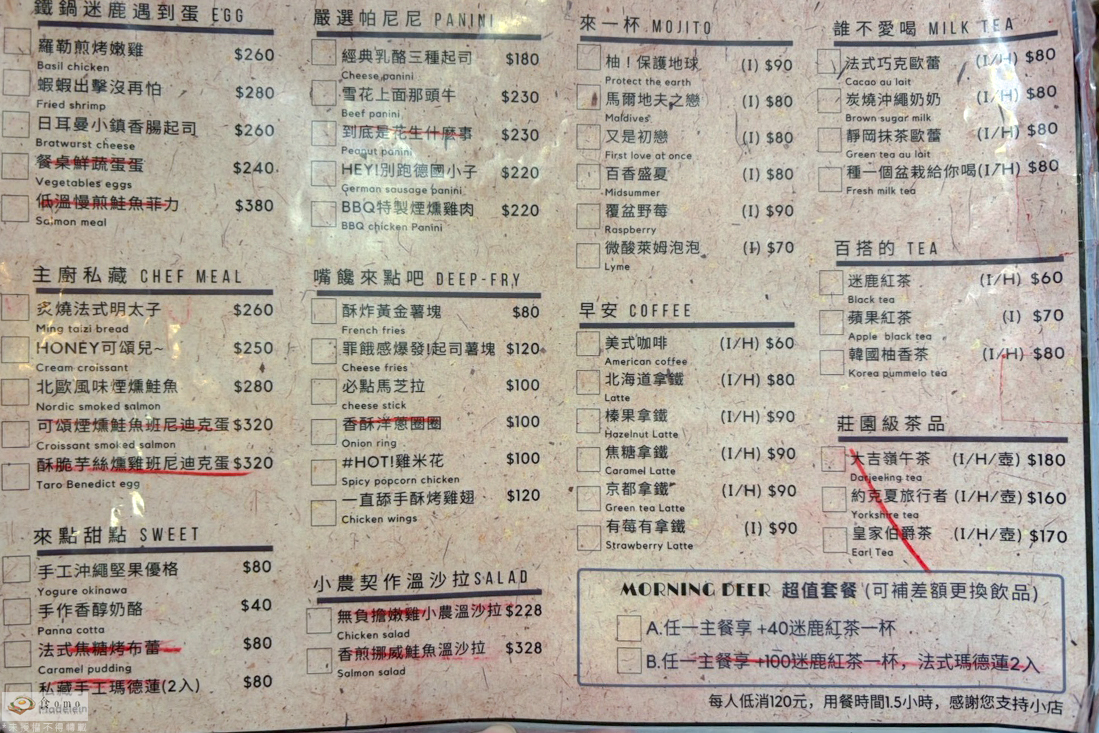 鐵鍋迷鹿遇到蛋 EGG
羅勒煎烤嫩雞 $260
Basil chicken
蝦蝦出擊沒再怕 $280
Fried shrimp
日耳曼小鎮香腸起司 $260
Bratwurst cheese
餐桌鮮蔬蛋蛋 $240
Vegetables eggs
低溫慢煎鮭魚菲力 $380
Salmon meal
主廚私藏 CHEF MEAL
炙燒法式明太子 $260
Ming taizi bread
HONEY可頌兒~ $250
Cream croissant
北歐風味煙燻鮭魚 $280
Nordic smoked salmon
可頌煙燻鮭魚班尼迪克蛋 $320
Croissant smoked salmon
酥脆芋絲燻雞班尼迪克蛋 $320
Taro Benedict egg
來點甜點 SWEET
手工沖繩堅果優格 $80
Yogure okinawa
手作香醇奶酪 $40
Panna cotta
法式焦糖烤布蕾 $80
Caramel pudding
私藏手工瑪德蓮(2入) $80
嚴選帕尼尼 PANINI
經典乳酪三種起司 $180
Cheese panini
雪花上面那頭牛 $230
Beef panini
到底是花生什麼事 $230
Peanut panini
HEY!別跑德國小子 $220
German sausage panini
BBQ特製煙燻雞肉 $220
BBQ chicken Panini
嘴饞來點吧 DEEP-FRY
酥炸黃金薯塊 $80
French fries
罪餓感爆發!起司薯塊 $120
Cheese fries
必點馬芝拉 $100
cheese stick
香酥洋蔥圈圈 $100
Onion ring
#HOT!雞米花 $100
Spicy popcorn chicken
一直舔手酥烤雞翅 $120
Chicken wings
小農契作溫沙拉SALAD
無負擔嫩雞小農溫沙拉 $228
Chicken salad
香煎挪威鮭魚溫沙拉 $328
Salmon salad
來一杯 MOJITO
柚！保護地球 (I) $90
Protect the earth
馬爾地夫之戀 (I) $80
Maldives
又是初戀 (I) $80
First love at once
百香盛夏 (I) $80
Midsummer
覆盆野莓 (I) $90
Raspberry
微酸萊姆泡泡 (I) $70
Lyme
早安 COFFEE
美式咖啡 (I/H) $60
American coffee
北海道拿鐵 (I/H) $80
Latte
榛果拿鐵 (I/H) $90
Hazelnut Latte
焦糖拿鐵 (I/H) $90
Caramel Latte
京都拿鐵 (I/H) $90
Green tea Latte
有莓有拿鐵 (I) $90
Strawberry Latte
誰不愛喝 MILK TEA
法式巧克歐蕾 (I/H) $80
Cacao au lait
炭燒沖繩奶奶 (I/H) $80
Brown sugar milk
靜岡抹茶歐蕾 (I/H) $80
Green tea au lait
種一個盆栽給你喝(I/H) $80
Fresh milk tea
百搭的 TEA
迷鹿紅茶 (I/H) $60
Black tea
蘋果紅茶 (I) $70
Apple black tea
韓國柚香茶 (I/H) $80
Korea pummelo tea
莊園級茶品
大吉嶺午茶 (I/H/壺) $180
Darjeeling tea
約克夏旅行者 (I/H/壺) $160
Yorkshire tea
皇家伯爵茶 (I/H/壺) $170
Earl Tea
MORNING DEER 超值套餐 (可補差額更換飲品)
A.任一主餐享 +40迷鹿紅茶一杯
B.任一主餐享 +100迷鹿紅茶一杯，法式瑪德蓮2入
每人低消120元，用餐時間1.5小時，感謝您支持小店